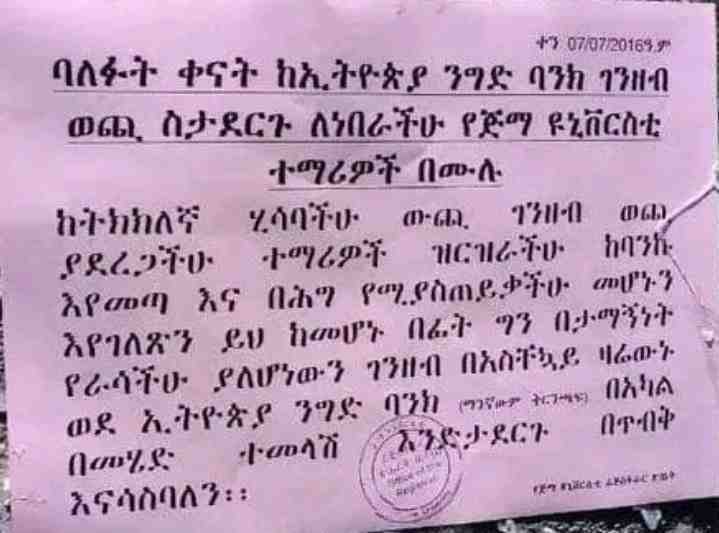 ቀን 07/07/2016ዓ.ም
ባለፉት ቀናት ከኢትዮጵያ ንግድ ባንክ ገንዘብ
ወጪ ስታደርጉ ለነበራችሁ የጅማ ዩኒቨርስቲ
ተማሪዎች በሙሉ
ከትክክለኛ ሂሳባችሁ ውጪ ገንዘብ ወጪ
ያደረጋችሁ ተማሪዎች ዝርዝራችሁ ከባንኩ
እየመጣ እና በሕግ የሚያስጠይቃችሁ መሆኑን
እየገለጽን ይህ ከመሆኑ በፊት ግን በታማኝነት
የራሳችሁ ያለሆነውን ገንዘብ በአስቸኳይ ዛሬውኑ
ወደ ኢትዮጵያ ንግድ ባንክ (ማንኛውም ቅርንጫፍ) በአካል
በመሄድ ተመላሽ እንድታደርጉ በጥብቅ
እናሳስባለን፡፡
Office of the
Registrar
የጅማ ዩኒቨርስቲ ሬጅስትራር